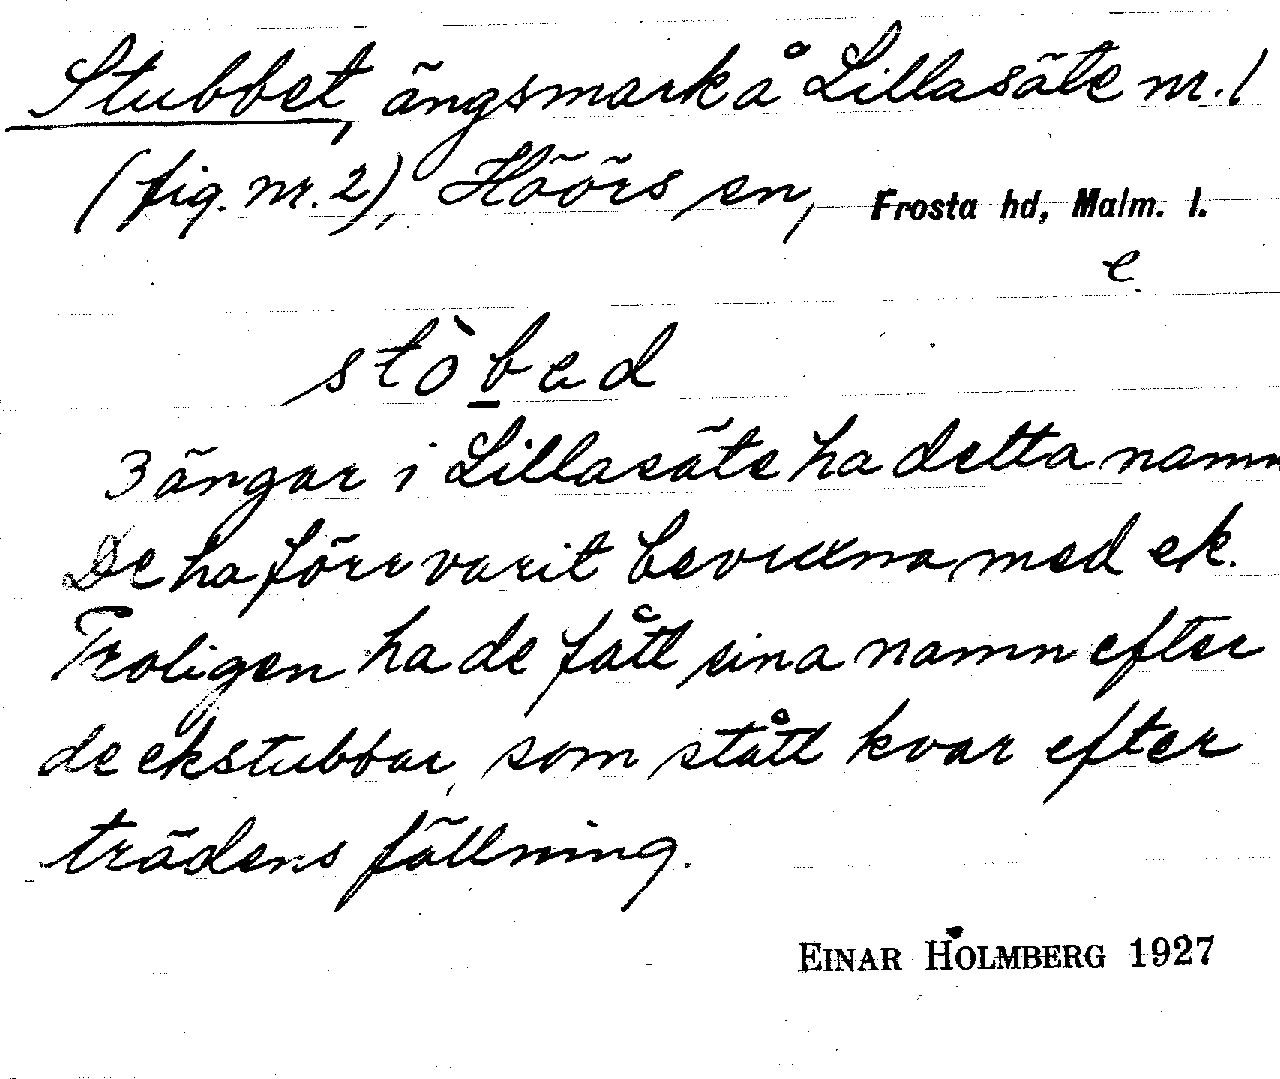 Stubbet, ängsmark å Lillasäte nr. 1
(fig. nr. 2), Höörs sn, Frosta hd, Malm. l.
e
stòbad
3 ängar i Lillasäte ha detta namn
De ha förr varit bevuxna med ek.
Troligen ha de fått sina namn efter
de ekstubbar, som stått kvar efter
trädens fällning.
EINAR HOLMBERG 1927